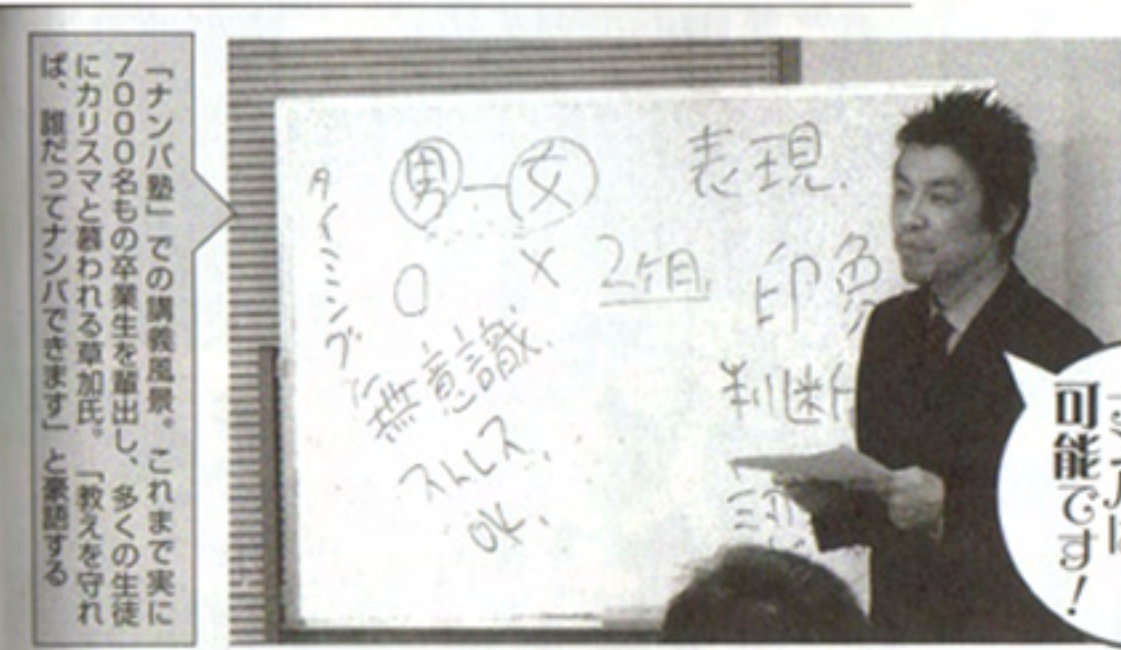 「ナンパ塾」での講義風景。これまで実に
7000名もの卒業生を輩出し、多くの生徒
にカリスマと慕われる草加氏。「教えを守れ
ば、誰だってナンパできます」と豪語する
タイミング
男―女
○ ×
無意識.
ストレス.
OK.
2ヶ月
表現.
印象
判断
可能です!